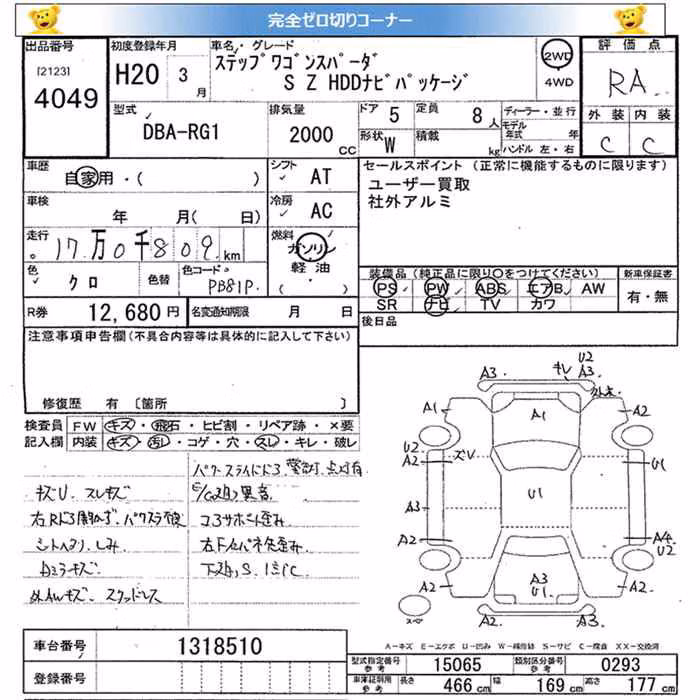 完全ゼロ切りコーナー
出品番号
[2123]
4049
初度登録年月
H20 3
月
車名・グレード
ステップワゴンスパーダ
S Z HDDナビパッケージ
2WD
4WD
評価点
RA
外装 内装
C C
型式
DBA-RG1
排気量
2000
CC
ドア 5
定員 8 人
形状 W
積載 kg
ディーラー・並行
モデル年式 年
ハンドル 左・右
車歴
自家用・( )
シフト
AT
セールスポイント (正常に機能するものに限ります)
ユーザー買取
社外アルミ
車検
年 月( 日)
冷房
AC
走行
17万0千809km
燃料
ガソリン
軽油
色
クロ
色替
色コード
PB81P
装備品 (純正品に限り○をつけてください)
PS PW ABS エアB AW
SR ナビ TV カワ
新車保証書
有・無
R券 12,680 円
名変通知期限 月 日
後日品
注意事項申告欄(不具合内容等は具体的に記入して下さい)
修復歴 有 [箇所 ]
検査員
記入欄
FW キズ・飛石・ヒビ割・リペア跡・×要
内装 キズ・汚し・コゲ・穴・スレ・キレ・破レ
キズU スレキズ
シートヘタリ、しみ
コアサポート歪み
U2
キレ A3
A3
A1
A1
A2
U2
A2
ズU
U1
U1
A3
A2
A4
U2
A2
A3
U1
A2
A2
A3
スペ
A-キズ E-エクボ U-凹み W-補修跡 S-サビ C-腐食 XX-交換済
車台番号
1318510
登録番号
型式指定番号
参考
15065
類別区分番号
参考
0293
車庫証明用
参考
長さ 466 cm
幅 169 cm
高さ 177 cm